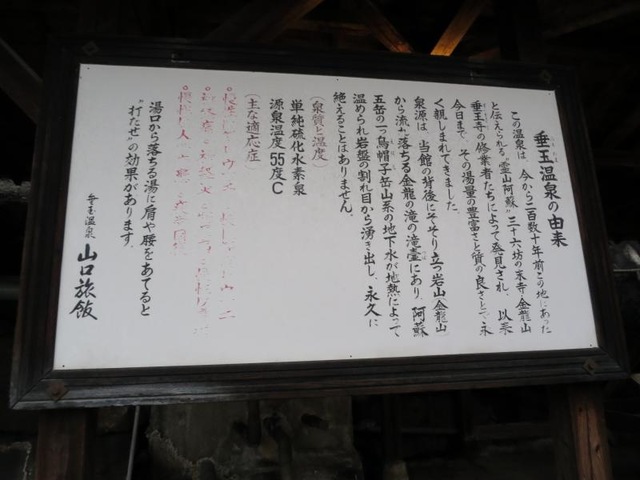 垂玉温泉の由来
この温泉は、今から二百数十年前この地にあった
と伝えられる“霊山阿蘇”三十六坊の末寺・金龍山
垂玉寺の修業者たちによって発見され、以来
今日まで、その湯量の豊富さと質の良さとで永
く親しまれてきました。
泉源は、当館の背後にそそり立つ岩山(金龍山)
から流れ落ちる金龍の滝の滝壷にあり、阿蘇
五岳の一つ烏帽子岳山系の地下水が地熱によって
温められ岩盤の割れ目から湧き出し、永久に
絶えることはありません。
(泉質と温度)
単純硫化水素泉
源泉温度55度C
(主な適応症)
湯口から落ちる湯に肩や腰をあてると
“打たせ”の効果があります。
垂玉温泉 山口旅館